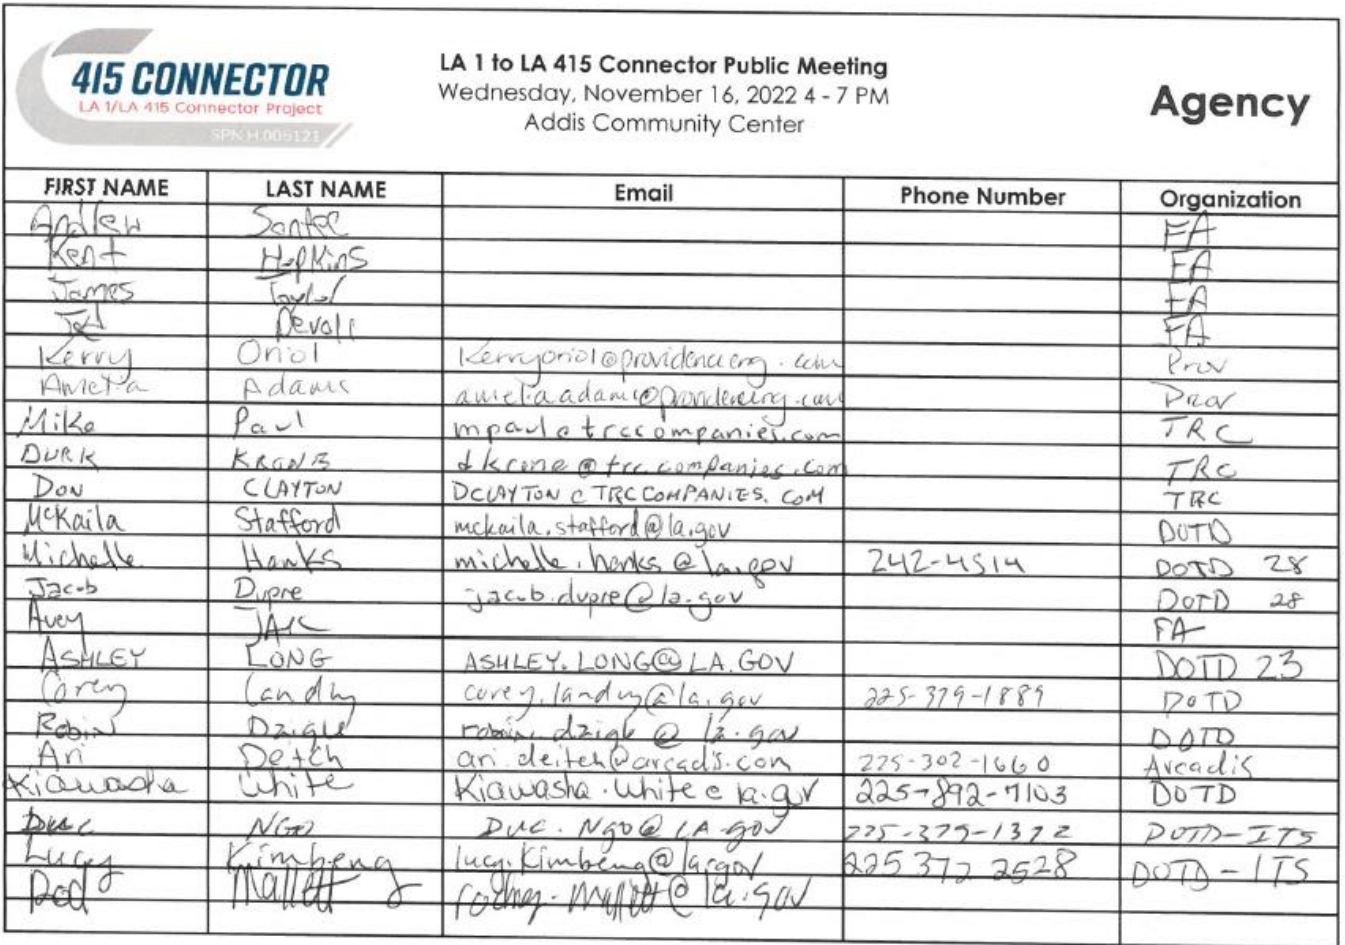 415 CONNECTOR
LA 1/LA 415 Connector Project
SPN H.005121
LA 1 to LA 415 Connector Public Meeting
Wednesday, November 16, 2022 4 - 7 PM
Addis Community Center
Agency
FIRST NAME LAST NAME Email Phone Number Organization
Andrew FA
Kent Hopkins FA
James Taylor FA
Devall FA
Kerry Oriol Kerryoriol@providenceeng.com Prov
Amelia Adams ameliaadams@providenceeng.com Prov
Mike Paul mpaul@trccompanies.com TRC
DURK KRONE dkrone@trccompanies.com TRC
DON CLAYTON DCLAYTON@TRCCOMPANIES.COM TRC
McKaila Stafford mckaila.stafford@la.gov DOTD
Michelle Hanks michelle.hanks@la.gov 242-4514 DOTD 28
Jacob Dupre jacob.dupre@la.gov DOTD 28
FA
ASHLEY LONG ASHLEY.LONG@LA.GOV DOTD 23
Corey Landry corey.landry@la.gov 225-379-1889 DOTD
Robin Daigle robin.daigle@la.gov DOTD
Ari Deitch ari.deitch@arcadis.com 225-302-1660 Arcadis
Kiawasha White Kiawasha.White@la.gov 225-892-7103 DOTD
Duc NGO DUC.Ngo@LA.gov 225-379-1372 DOTD-ITS
Lucy Kimbeng lucy.Kimbeng@la.gov 225 372 2528 DOTD-ITS
Rod Mallett rodney.mallett@la.gov